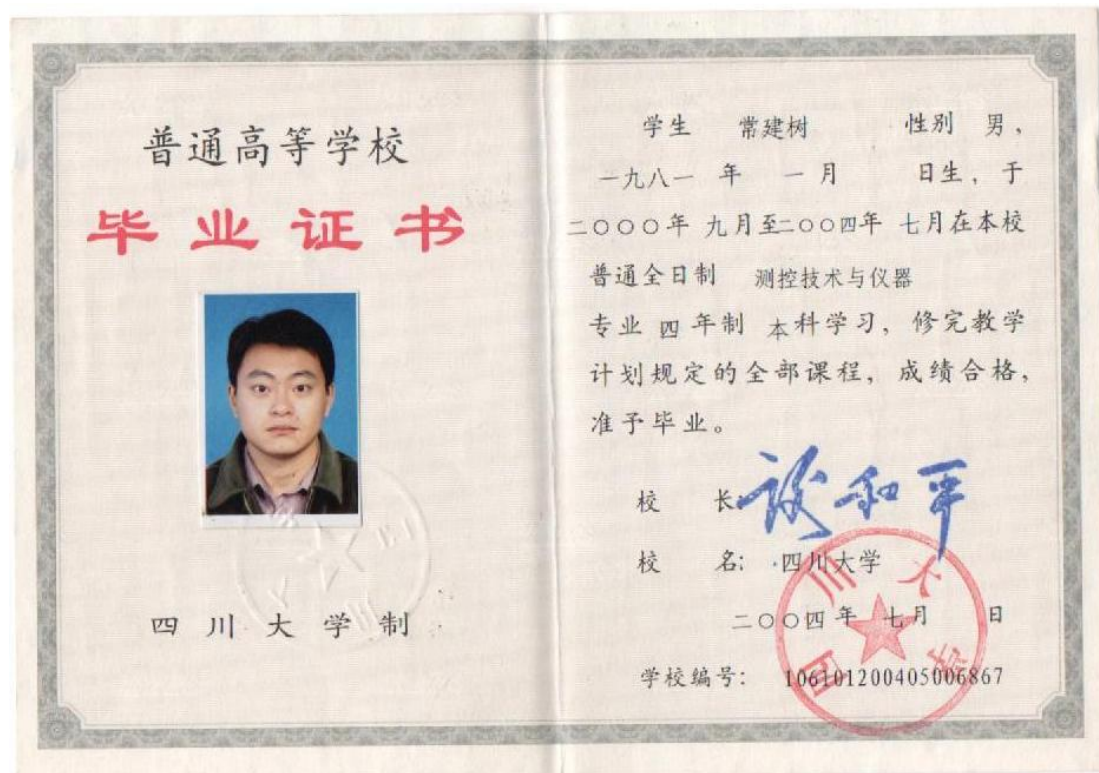 普通高等学校
毕业证书
四川大学制
学生 常建树 性别 男，
一九八一 年 一 月 日生，于
二〇〇〇年 九月至二〇〇四年 七月在本校
普通全日制 测控技术与仪器
专业 四 年制 本科学习，修完教学
计划规定的全部课程，成绩合格，
准予毕业。
校 长
谢和平
校 名: 四川大学
二〇〇四年 七月 日
学校编号: 106101200405006867
四川大学